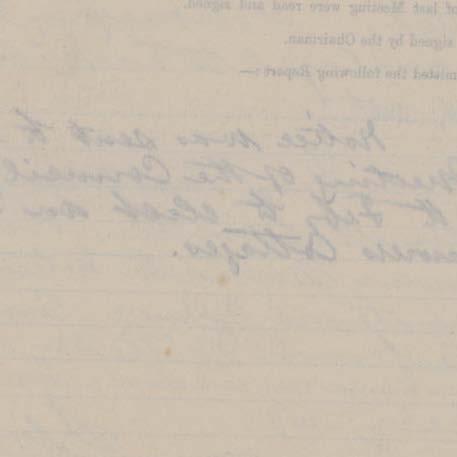 of last Meeting were read and signed.
signed by the Chairman.
the following Report:—
Notice was sent to
Meeting of the Council
to elect an
Cottages.